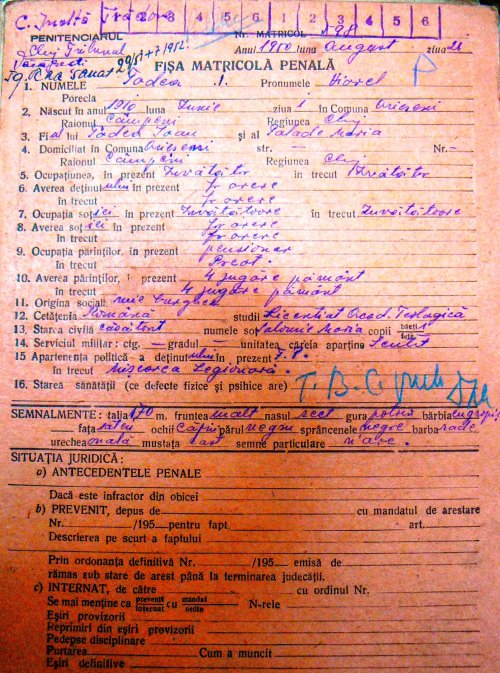 C. Înaltă Trădare
1 2 3 4 5 6 1 2 3 4 5 6
PENITENCIARUL
NR. MATRICOL 598
Cluj Tribunal
Anul 1950 luna August ziua
Tg. Ocna Sanat 29/51 +
P
FIȘA MATRICOLĂ PENALĂ
1. NUMELE Todea I. Pronumele Viorel
Porecla
2. Născut în anul 1910 luna Iunie ziua 1 în Comuna Arieseni
Raionul Câmpeni Regiunea Cluj
3. Fi al lui Todea Ioan și al Palade Maria
4. Domiciliat în Comuna Arieseni str. — Nr. —
Raionul Câmpeni Regiunea Cluj
5. Ocupațiunea, în prezent Învățător în trecut Învățător
6. Averea deținutului în prezent n'are
în trecut n'are
7. Ocupația soției în prezent Învățătoare în trecut Învățătoare
8. Averea soției în prezent n'are
în trecut n'are
9. Ocupația părinților, în prezent pensionar
în trecut Preot.
10. Averea părinților, î prezent 4 jugăre pământ
în trecut 4 jugăre pământ
11. Origina socială mic burghez
12. Cetățenia Română studii Licențiat Acad. Teologică
13. Starea civilă căsătorit numele soției Maria copii băeți 1 fete
14. Serviciul militar: ctg. — gradul — unitatea căreia aparține Scutit
15. Apartenența politică a deținutului în prezent F.P.
în trecut mișcarea Legionară.
16. Starea sănătății (ce defecte fizice și psihice are)
T.B.C.
SEMNALMENTE: talia 1,70 m. fruntea înalt nasul rect gura potriv bărbia
fața ochii căprii părul negru sprâncenele negre barba rade
urechea ovală mustața semne particulare n'are.
SITUAȚIA JURIDICĂ:
a) ANTECEDENTELE PENALE
Dacă este infractor din obicei
b) PREVENIT, depus de cu mandatul de arestare
Nr. /195 pentru fapt. art.
Descrierea pe scurt a faptului
Prin ordonanța definitivă Nr. /195 emisă de
rămas sub stare de arest până la terminarea judecății.
c) INTERNAT, de către cu ordinul Nr.
Se mai menține ca prevenit internat cu mandat ordin N-rele
Eșiri provizorii
Reprimiri din eșiri provizorii
Pedepse disciplinare
Purtarea Cum a muncit
Eșiri definitive